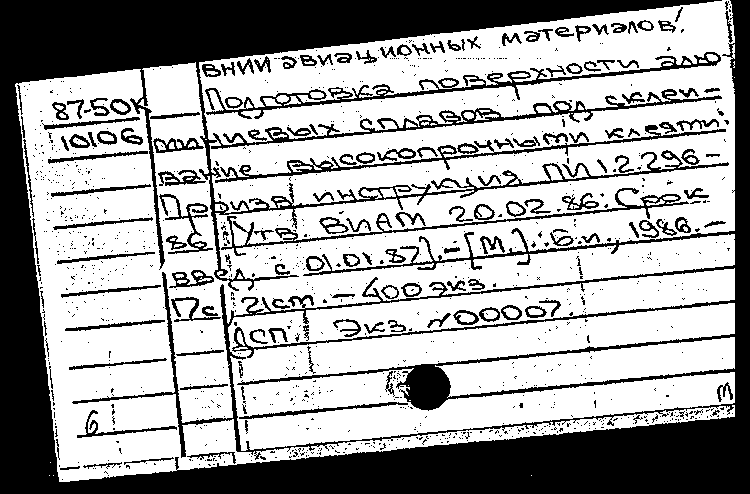 ВНИИ авиационных материалов.
87-50к Подготовка поверхности алю-
10106 миниевых сплавов под склеи-
вание высокопрочными клеями:
Произв. инструкция ПИ 1.2.296-
86 [Утв. ВИАМ 20.02.86: Срок
введ. с 01.01.87]. - [М.]: Б.и., 1986. -
17с, 21см. - 400 экз.
Дсп. Экз. N00007.
6 м